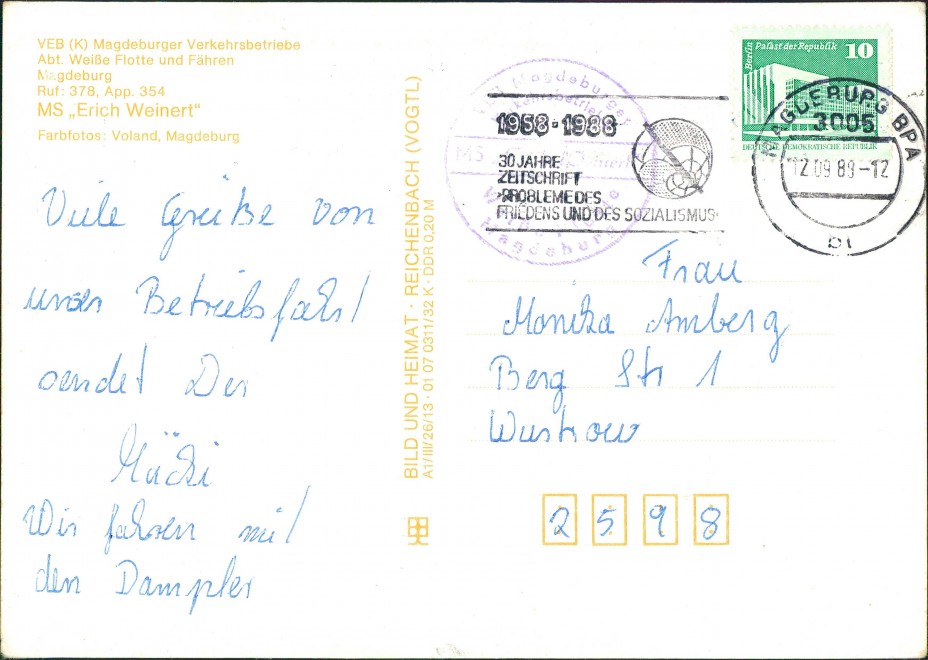 VEB (K) Magdeburger Verkehrsbetriebe
Abt. Weiße Flotte und Fähren
Magdeburg
Ruf: 378, App. 354
MS „Erich Weinert"
Farbfotos: Voland, Magdeburg
Viele Grüße von
unser Betriebsfahrt
sendet Dir
Mücki
Wir fahren mit
den Dampfer
BILD UND HEIMAT · REICHENBACH (VOGTL)
A1/III/26/13 · 01 07 0311/32 K · DDR 0,20 M
Magdeburger
Verkehrsbetriebe
MS
Weinert
Magdeburg
1958-1988
30 JAHRE
ZEITSCHRIFT
>PROBLEME DES
FRIEDENS UND DES SOZIALISMUS<
Berlin Palast der Republik 10
DEUTSCHE DEMOKRATISCHE REPUBLIK
MAGDEBURG BPA
3005
12.09.89-12
bt
Frau
Monika Amberg
Berg Str 1
Wustrow
2598